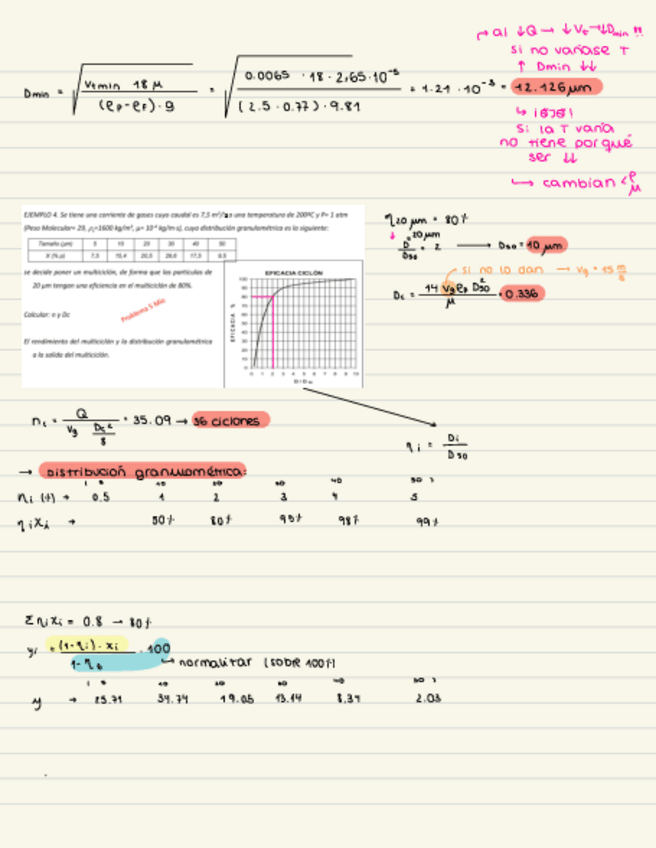 → al ↓Q → ↓Vt → ↓Dmin !!
si no variase T
↑ Dmin ↓↓
Dmin = √ Vtmin 18 μ / (ρp-ρf)·g = √ 0.0065 · 18 · 2,65·10⁻⁵ / (2.5 · 0.77) · 9.81 = 1.21 · 10⁻³ = 12.126 μm
si la T varia
no tiene por qué
ser ↓↓
↳ cambian < ρ μ
EJEMPLO 4. Se tiene una corriente de gases cuyo caudal es 7,5 m³/s a una temperatura de 200ºC y P= 1 atm
(Peso Molecular= 29, ρs=1600 kg/m³, μ= 10⁻⁵ kg/m·s), cuya distribución granulométrica es la siguiente:
Tamaño (μm) 5 10 20 30 40 50
X (% μ) 7,5 15,4 20,5 17,5
se decide poner un multiciclón, de forma que las partículas de
20 μm tengan una eficiencia en el multiciclón de 80%.
Calcular: n y Dc
Problema 5 Mio
El rendimiento del multiciclón y la distribución granulométrica
a la salida del multiciclón.
EFICACIA CICLÓN
EFICACIA %
100
90
80
70
60
50
40
30
20
10
0
0 1 2 3 4 5 6 7 8 9 10
η20 μm = 80%
20 μm
D / D50 = 2 → D50 = 10 μm
si no lo dan → Vg = 15 m/s
Dc = 14 Vg ρp D50² / μ = 0.336
nc = Q / Vg Dc²/8 = 35.09 → 36 ciclones
ηi = Di / D50
→ Distribución granulométrica:
10 20 30 40 50
ηi (%) → 0.5 1 2 3 4 5
ηi Xi → 50% 80% 95% 98% 99%
Σ ηi xi = 0.8 → 80%
yi = (1-ηi) · xi / 1-η · 100
↳ normalizar (sobre 100%)
y → 25.71 34.74 19.05 13.14 2.03